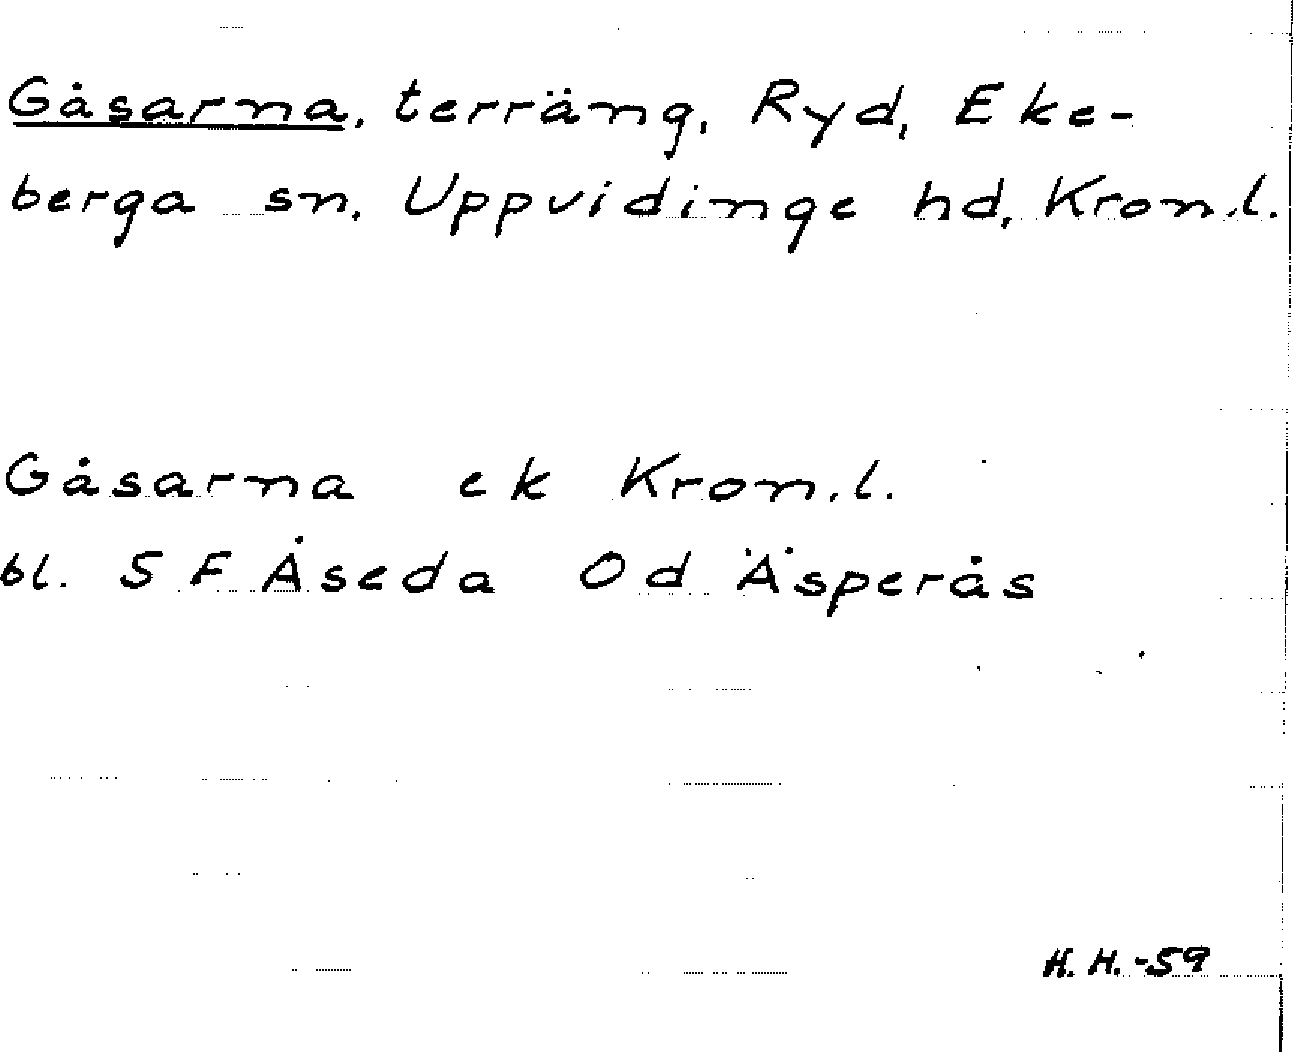 Gåsarna, terräng, Ryd, Eke-
berga sn, Uppvidinge hd, Kron.l.
Gåsarna ek Kron.l.
bl. 5 F Åseda 0d Äsperås
H.H.-59